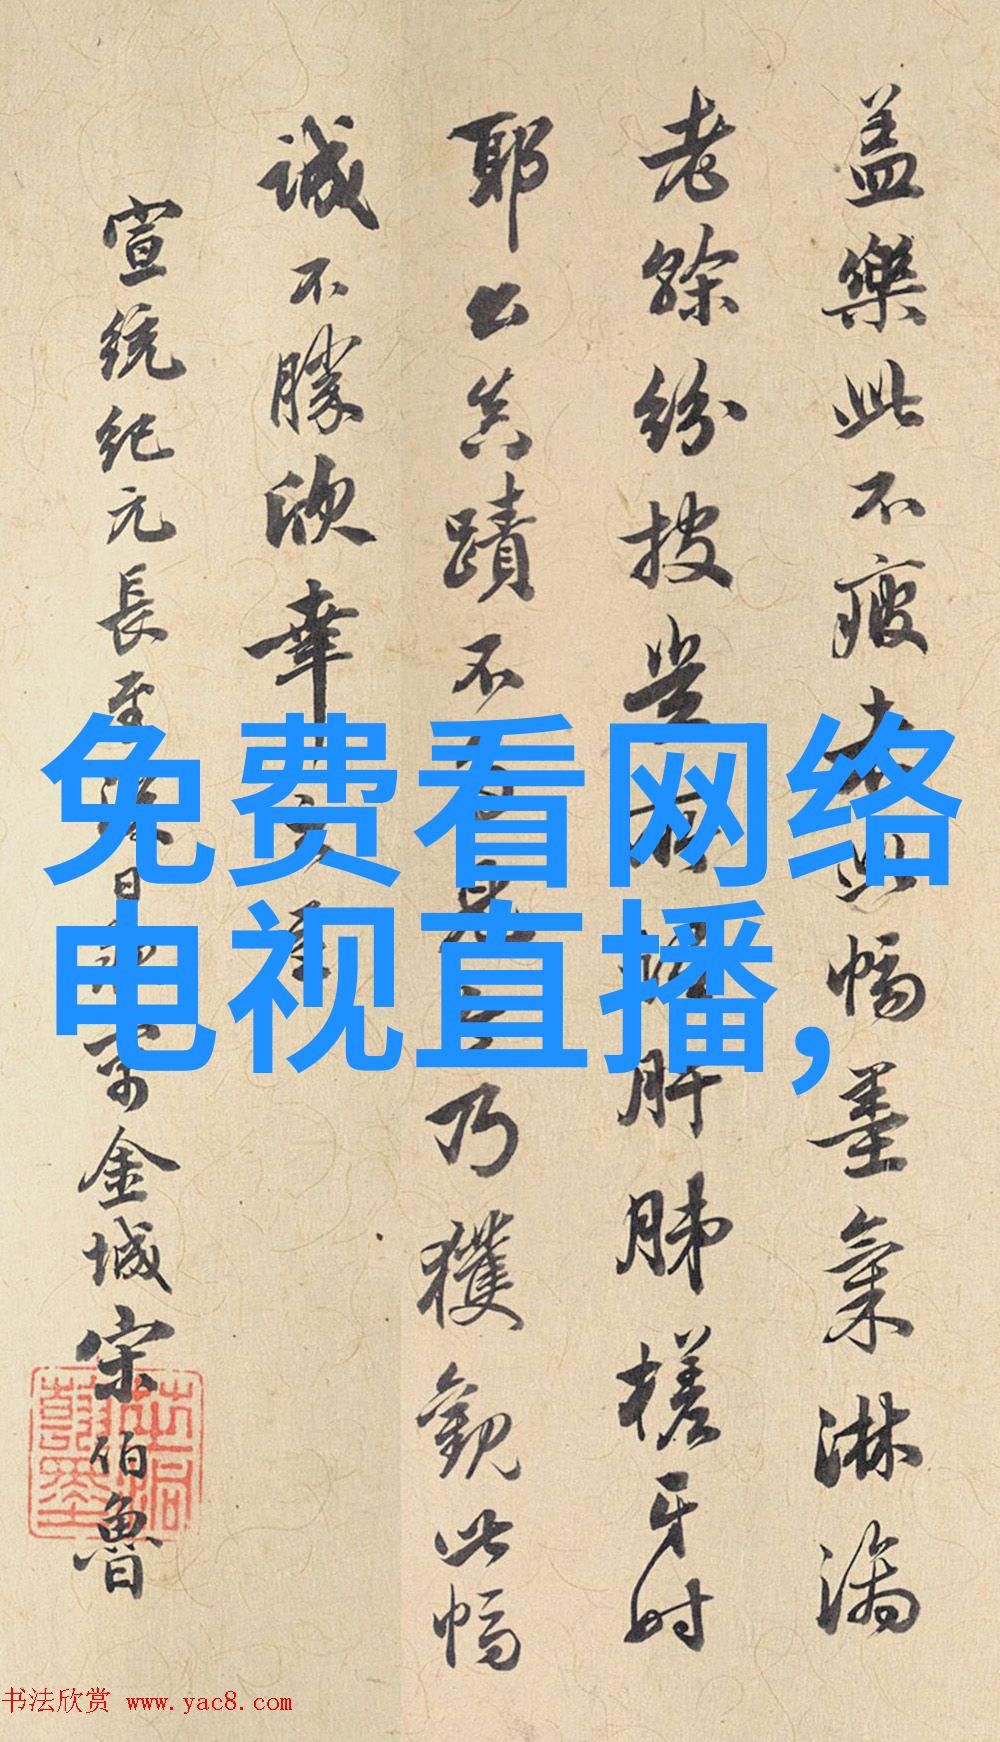 蓋樂此不疲此幅墨氣淋漓
老餘紛披豈所謂肝肺槎牙時
耶公真蹟不乃獲觀此幅
誠不勝欣幸
宣統紀元長至日金城宋伯魯
免费看网络
电视直播,
书法欣赏 www.yac8.com